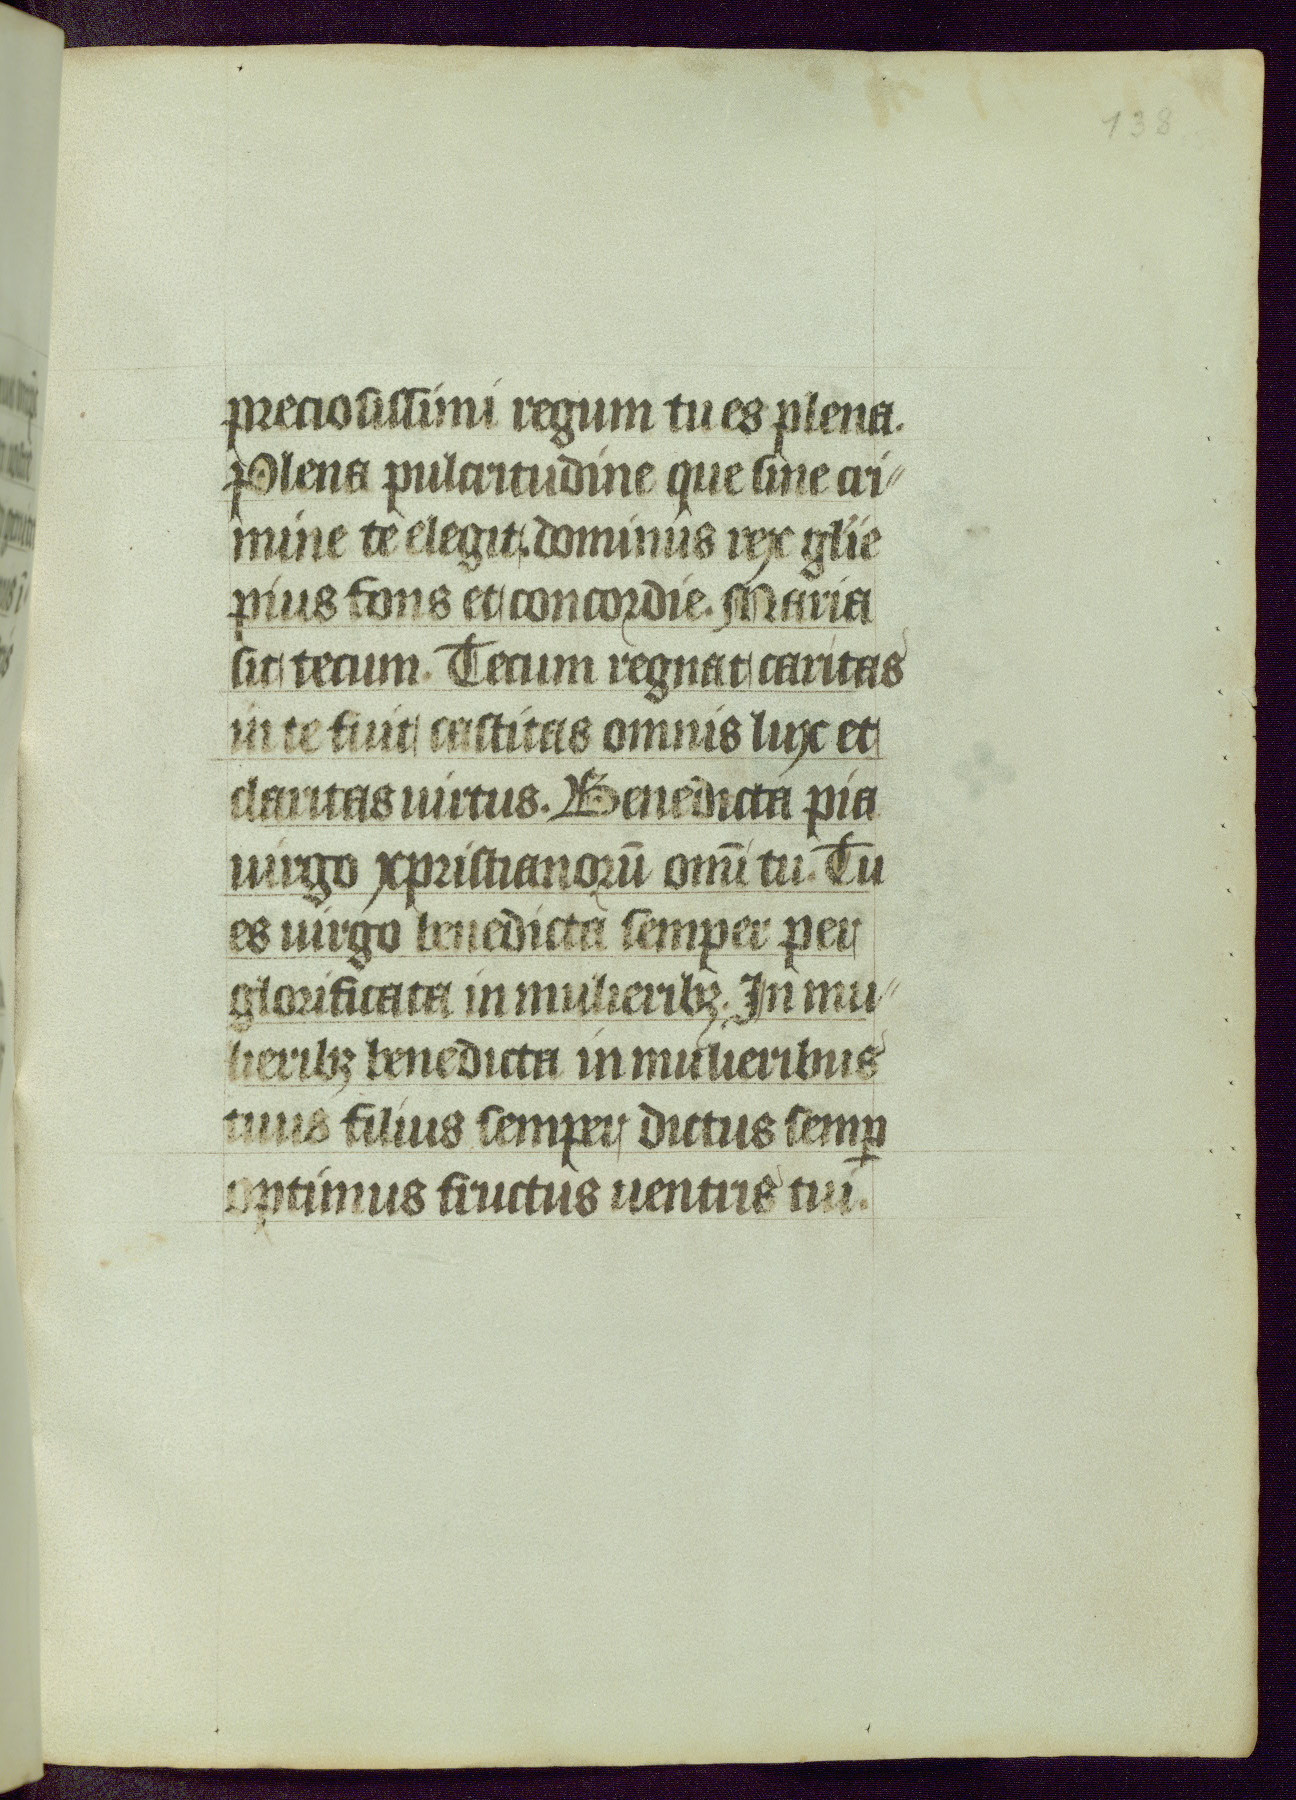 138
preciosissimi regum tu es plena.
Plena pulcritudine que sine cri〃
mine te elegit. dominus rex gl̄ie
pius fons et concordie. Maria
sit tecum. Tecum regnat caritas
in te fuit castitas omnis lux et
claritas uirtus. Benedicta pia
uirgo xpristianorū om̄i tu. Tu
es uirgo benedicta semper per
glorificata in mulieribꝫ. In mu〃
lieribꝫ benedicta in mulieribus
tuus filius semper dictus semꝑ
optimus fructus uentris tui.